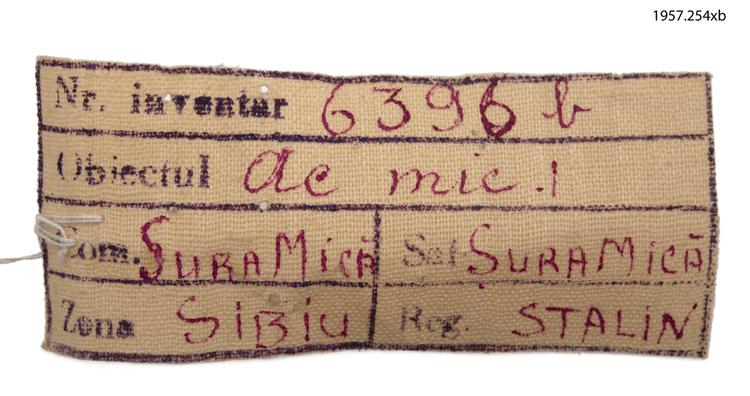 1957.254xb
Nr. inventar 6396 b
Obiectul ac mic.1
Com. ȘURA MICĂ Sat ȘURA MICĂ
Zona SIBIU Reg. STALIN